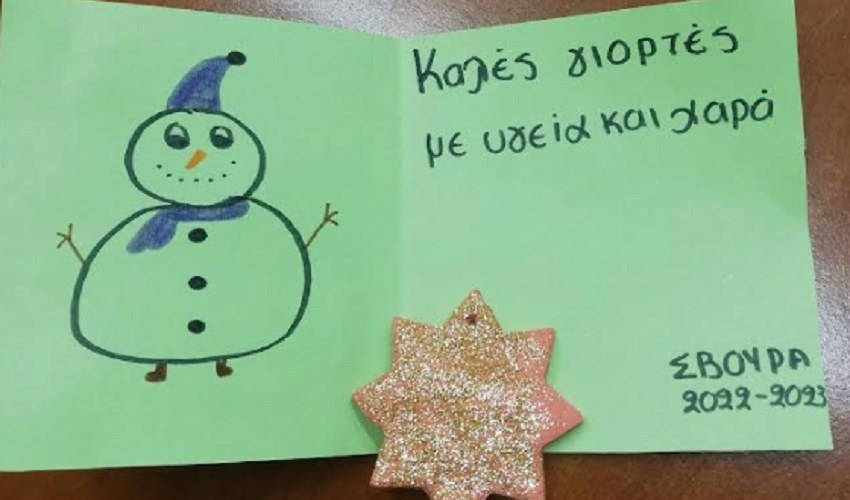 Καλές γιορτές
με υγεία και χαρά
ΣΒΟΥΡΑ
2022-2023